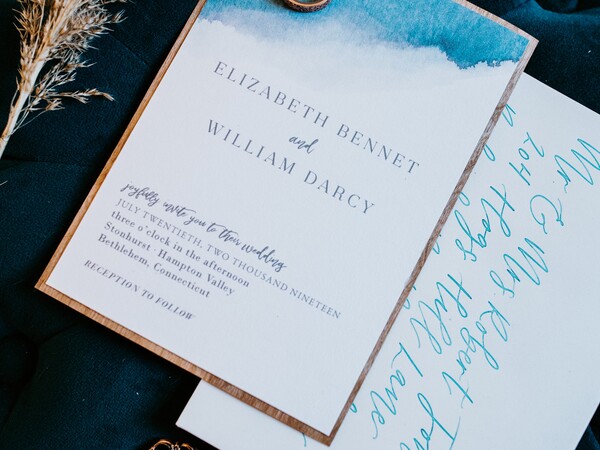 ELIZABETH BENNET
and
WILLIAM DARCY
joyfully invite you to their wedding
JULY TWENTIETH, TWO THOUSAND NINETEEN
three o'clock in the afternoon
Stonhurst Hampton Valley
Bethlehem, Connecticut
RECEPTION TO FOLLOW
Mr. & Mrs. Robert
204 Hogg Hill Lane